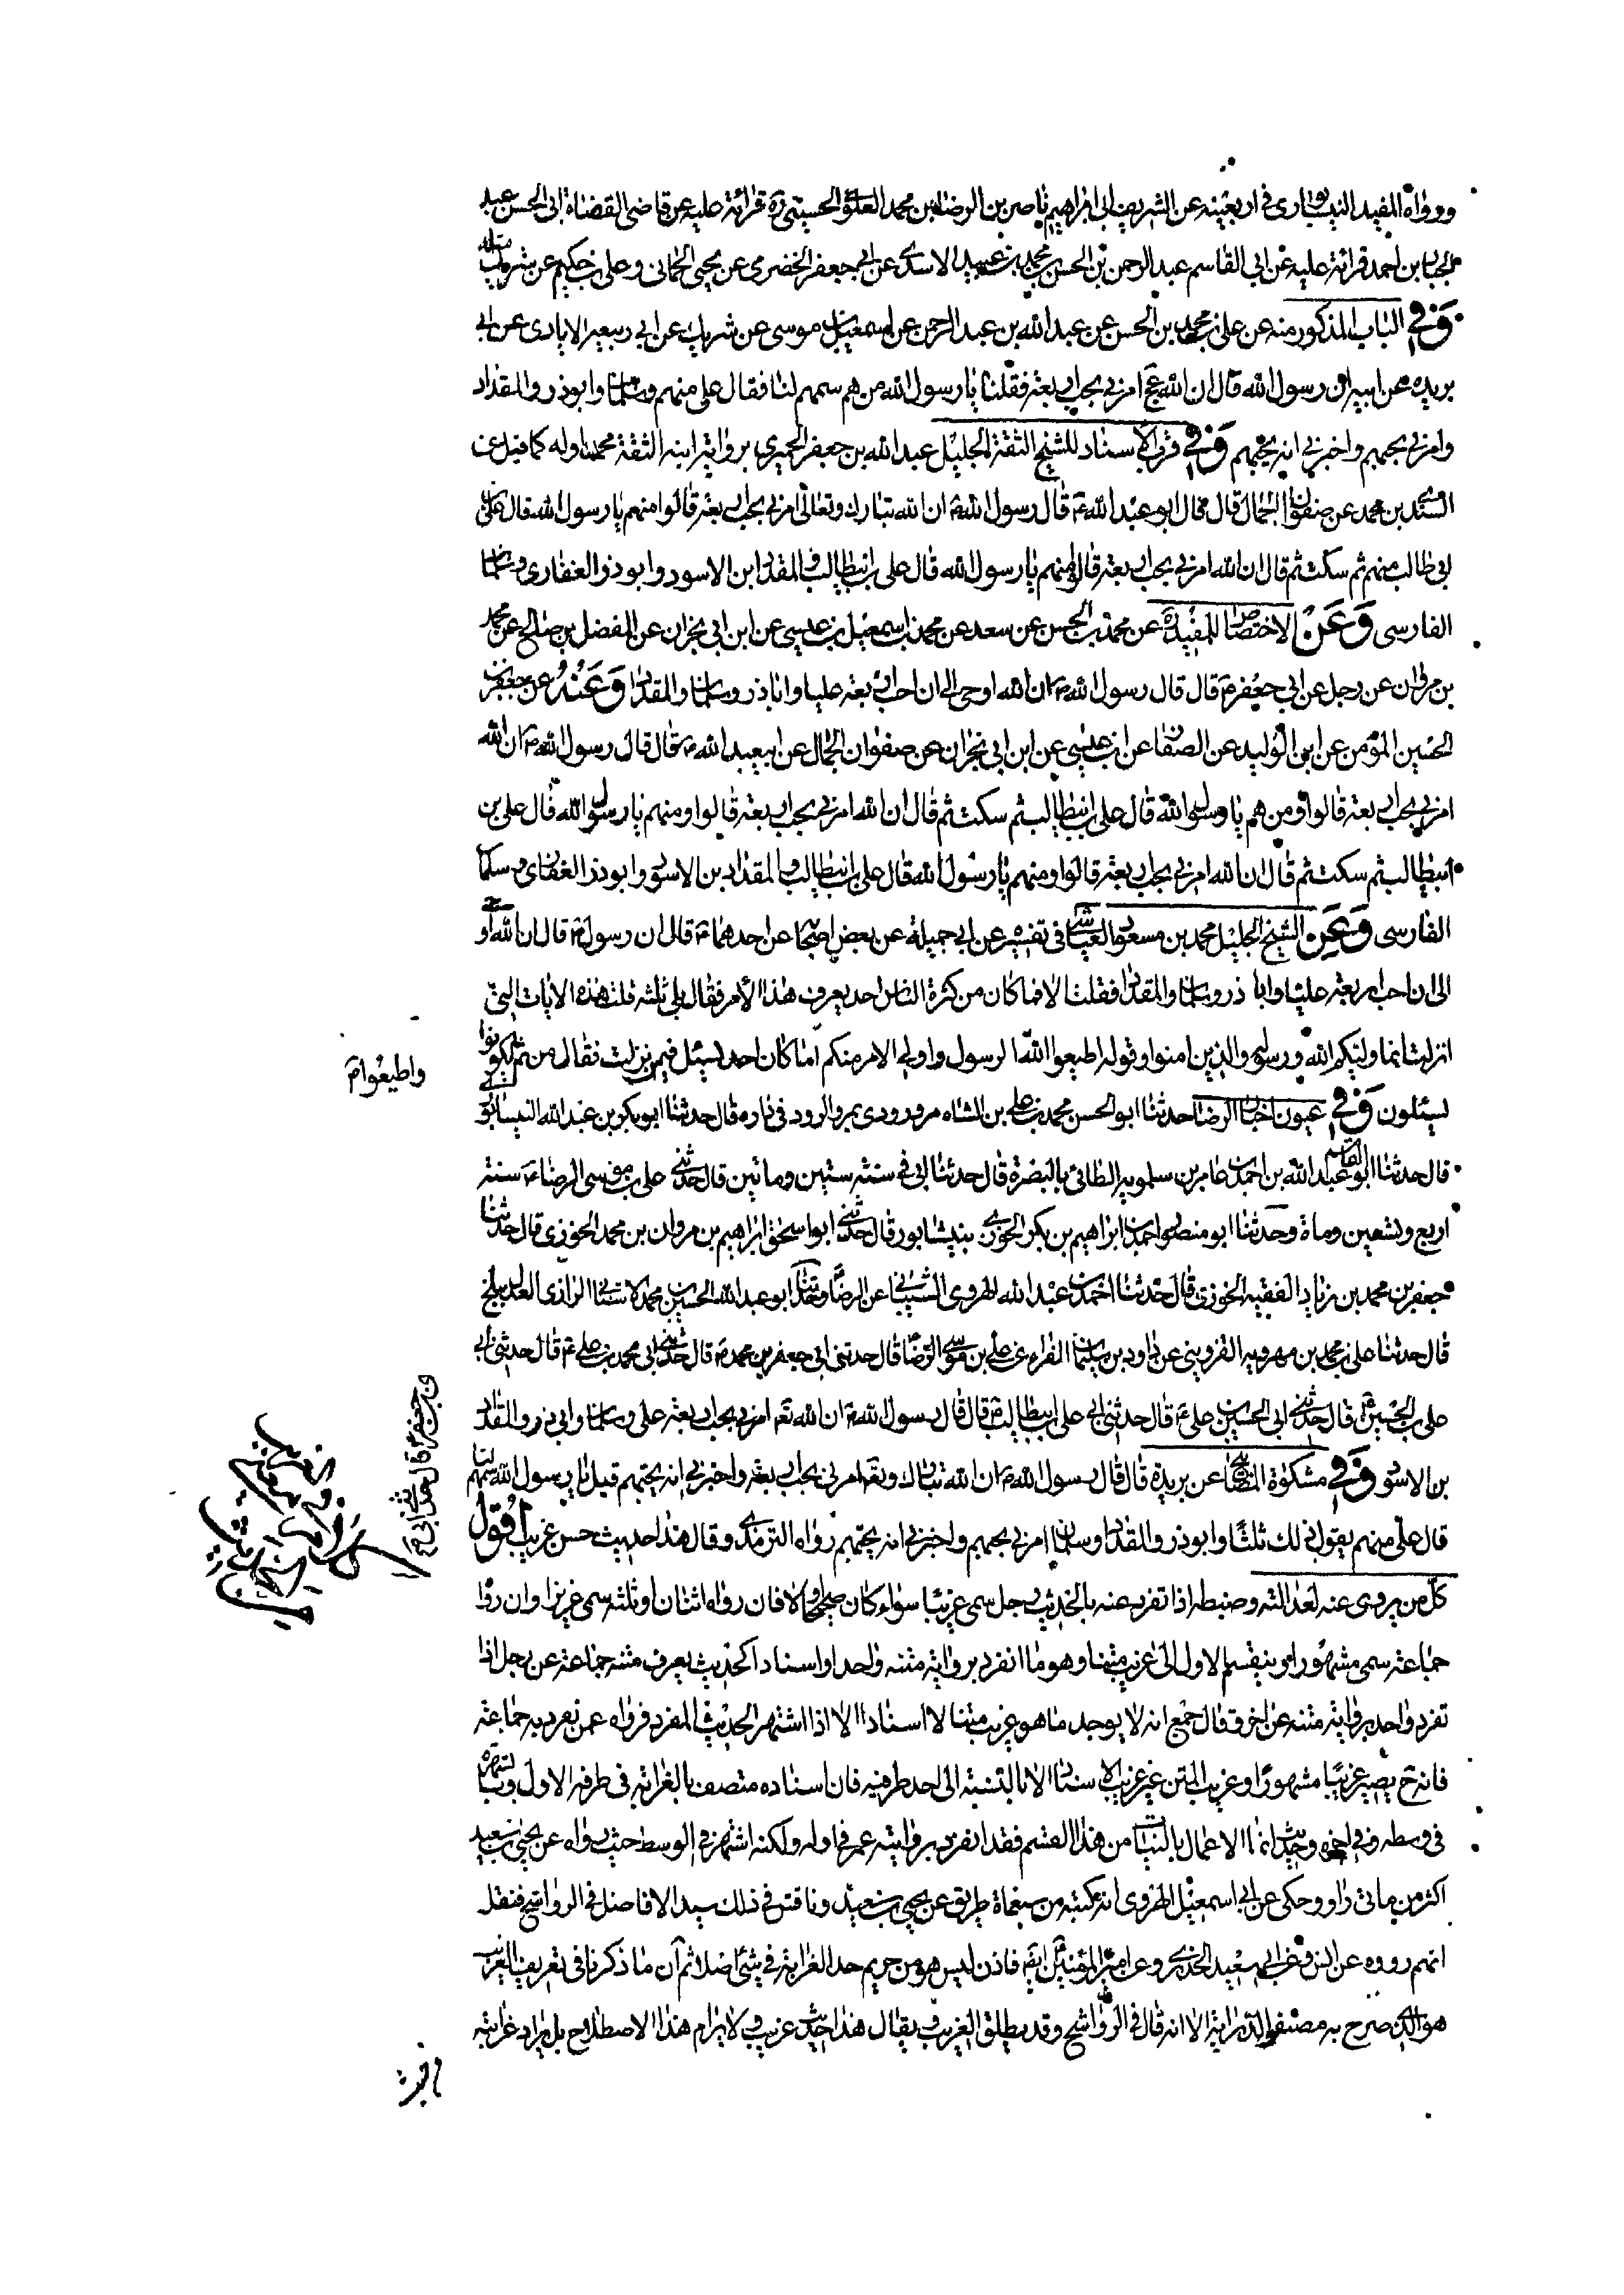 ورواه المفيد النيسابوري في اربعينه عن الشريف ابي ابراهيم ناصر بن الرضا بن محمد العلوي الحسيني ره قرائة عليه عن قاضي القضاة ابي الحسن عبد
الجبار بن احمد قرائة عليه عن ابي القاسم عبد الرحمن بن الحسن بن محمد بن عبيد الاسدي عن ابي جعفر الحضرمي عن يحيى الحماني وعلي بن حكيم عن شريك مثله
وفي الباب المذكور منه عن علي بن محمد بن الحسن عن عبد الله بن عبد الرحمن عن اسمعيل بن موسى عن شريك عن ابي ربيعة الايادي عن ابن
بريدة عن ابيه ان رسول الله قال ان الله عج امرني بحب اربعة فقلنا يا رسول الله من هم سمهم لنا فقال علي منهم وسلمان وابوذر والمقداد
وامرني بحبهم واخبرني انه يحبهم وفي قرب الاسناد للشيخ الثقة الجليل عبد الله بن جعفر الحميري برواية ابنه الثقة محمد اوله كما قيل عن
السندي بن محمد عن صفوان الجمال قال قال ابو عبد الله ع قال رسول الله ص ان الله تبارك وتعالى امرني بحب اربعة قالوا منهم يا رسول الله قال علي بن
ابي طالب منهم ثم سكت ثم قال ان الله امرني بحب اربعة قالوا منهم يا رسول الله قال علي بن ابيطالب والمقداد ابن الاسود وابوذر الغفاري وسلمان
الفارسي وعن الاختصاص للمفيد ره عن محمد بن الحسن عن سعد عن محمد بن اسمعيل بن عيسى عن ابن ابي نجران عن المفضل بن صالح عن محمد
بن مروان عن رجل عن ابي جعفر ع قال قال رسول الله ص ان الله اوحى الي ان احب اربعة عليا واباذر وسلمان والمقداد وعنه عن جعفر بن
الحسين المؤمن عن ابن الوليد عن الصفار عن ابن عيسى عن ابن ابي نجران عن صفوان الجمال عن ابيعبد الله ع قال قال رسول الله ص ان الله
امرني بحب اربعة قالوا ومن هم يا رسول الله قال علي بن ابيطالب ثم سكت ثم قال ان الله امرني بحب اربعة قالوا ومنهم يا رسول الله قال علي بن
ابيطالب ثم سكت ثم قال ان الله امرني بحب اربعة قالوا ومنهم يا رسول الله قال علي بن ابيطالب والمقداد بن الاسود وابوذر الغفاري وسلمان
الفارسي وعن الشيخ الجليل محمد بن مسعود العياشي في تفسيره عن ابي جميلة عن بعض اصحابنا عن احدهما ع قال ان رسول ص قال ان الله اوحى
الي ان احب اربعة عليا واباذر وسلمان والمقداد فقلت الا فما كان من كثرة الناس احد يعرف هذا الامر فقال بلى ثلثة قلت هذه الايات التي
انزلت انما وليكم الله ورسوله والذين امنوا وقوله اطيعوا الله الرسول واولي الامر منكم اما كان احد يسئل فيم نزلت فقال من ثم لم يكونوا
واطيعوا م
يسئلون وفي عيون اخبار الرضا حدثنا ابو الحسن محمد بن علي بن الشاه مرورودي بمرو الرود في داره قال حدثنا ابو بكر بن عبد الله النيسابوري
قال حدثنا ابو القاسم عبد الله بن احمد بن عامر بن سلمويه الطائي بالبصرة قال حدثنا ابي في سنة ستين ومائتين قال حدثني علي بن موسى الرضا ع سنة
اربع وتسعين وماة وحدثنا ابو منصور احمد بن ابراهيم بن بكر الخوزي بنيشابور قال حدثني ابو اسحق ابراهيم بن مروان بن محمد الخوزي قال حدثنا
جعفر بن محمد بن زياد الفقيه الخوزي قال حدثنا احمد بن عبد الله الهروي الشيباني عن الرضا وحدثنا ابو عبد الله الحسين بن محمد الاشناني الرازي العدل ببلخ
قال حدثنا علي بن محمد بن مهرويه القزويني عن داود بن سليمان الفراء عن علي بن موسى الرضا قال حدثني ابي جعفر بن محمد ع قال حدثني ابي محمد بن علي ع قال حدثني ابي
علي بن الحسين ع قال حدثني ابي الحسين بن علي ع قال حدثني ابي علي بن ابيطالب ع قال قال رسول الله ص ان الله تع امرني بحب اربعة علي وسلمان وابي ذر والمقداد
بن الاسود وفي مشكوة المصابيح عن بريدة قال قال رسول الله ص ان الله تبارك وتعا امرني بحب اربعة واخبرني انه يحبهم قيل يا رسول الله سمهم لنا
قال علي منهم يقول ذلك ثلثا وابوذر والمقداد وسلمان امرني بحبهم واخبرني انه يحبهم رواه الترمذي وقال هذا حديث حسن غريب اقول
كل من يروى عنه لعدالته وضبطه اذا تفرد عنه بالحديث رجل سمي غريبا سواء كان صحيحا او لا فان رواه اثنان او ثلثة سمي عزيزا وان رواه
جماعة سمي مشهورا وينقسم الاول الى غريب متنا وهو ما انفرد برواية متنه واحد او اسنادا كحديث يعرف متنه جماعة عن رجل اذا
تفرد واحد برواية متنه عن اخر وقال جمع انه لا يوجد ما هو غريب متنا لا اسنادا الا اذا اشتهر الحديث المفرد فرواه عمن تفرد به جماعة
فانه ح يصير غريبا مشهورا وغريب المتن غير غريب الاسناد الا بالنسبة الى احد طرفيه فان اسناده متصف بالغرابة في طرفه الاول وبالشهرة
في وسطه وفي اخره وحديث انما الاعمال بالنيات من هذا القسم فقد انفرد بروايته عمر في اوله ولكنه اشتهر في الوسط حيث رواه عن يحيى بن سعيد
اكثر من مائتي راو وحكى عن ابي اسمعيل الهروي انه كتبه من سبعماة طريق عن يحيى بن سعيد وناقش في ذلك سيد الافاضل في الرواشح فنقل
انهم رووه عن انس وعن ابي سعيد الخدري وعن امير المؤمنين ايضه فاذن ليس هو من حريم حد الغرابة في شئ اصلا ثم ان ما ذكرنا في تعريف الغريب
هو الذي صرح به مصنفو الدراية الا انه قال في الرواشح وقد يطلق الغريب ويقال هذا حديث غريب ولا يرام هذا الاصطلاح بل يراد غرابته